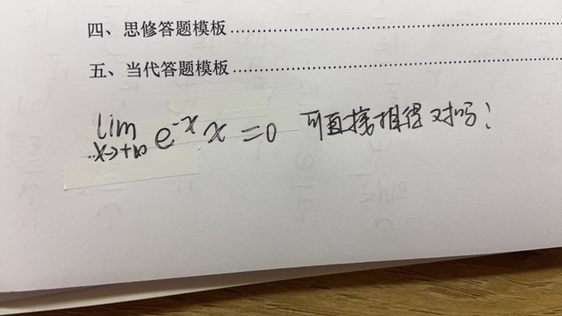 四、思修答题模板……………………
五、当代答题模板……………………
lim x→+∞ e^-x x = 0 可直接推得对吗?